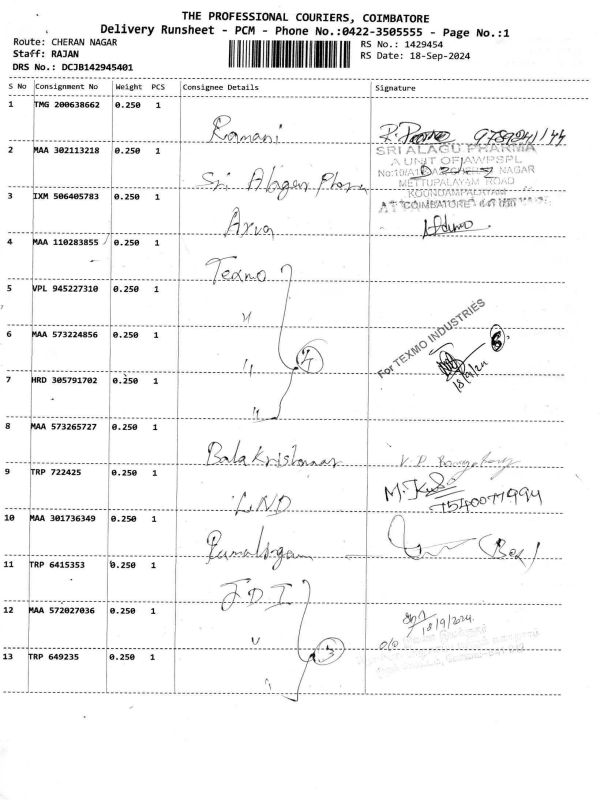 THE PROFESSIONAL COURIERS, COIMBATORE
Delivery Runsheet - PCM - Phone No.:0422-3505555 - Page No.:1
Route: CHERAN NAGAR
RS No.: 1429454
Staff: RAJAN
RS Date: 18-Sep-2024
DRS No.: DCJB142945401
S No Consignment No Weight PCS Consignee Details Signature
1 TMG 200638662 0.250 1
Ramani
2 MAA 302113218 0.250 1
SRI ALAGU PHARMA
A UNIT OF AWPSPL
NAGAR
METTUPALAYAM ROAD
KOUNDAMPALAYAM
Sri Alagu Pharma
3 IXM 506405783 0.250 1
AT COIMBATORE
Arva
4 MAA 110283855 0.250 1
Texmo
5 VPL 945227310 0.250 1
"
For TEXMO INDUSTRIES
6 MAA 573224856 0.250 1
"
4
18/9/24
7 HRD 305791702 0.250 1
"
8 MAA 573265727 0.250 1
Bala Krishnan
9 TRP 722425 0.250 1
L.N.D
M.
7540077994
10 MAA 301736349 0.250 1
(Box)
11 TRP 6415353 0.250 1
J.D.I
12 MAA 572027036 0.250 1
18/9/2024.
"
3
13 TRP 649235 0.250 1
"